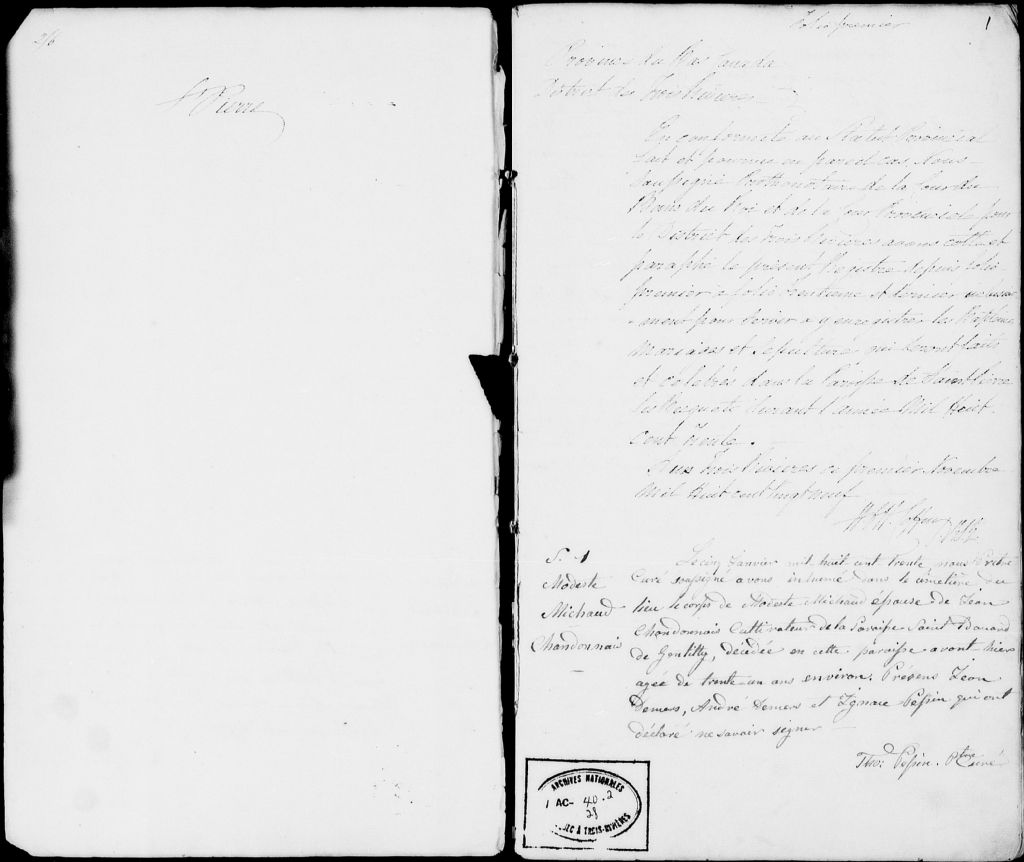 St Pierre
Folio premier
1
Province du Bas Canada
District des Trois Rivières
En conformité au Statut Provincial
fait et pourvu en pareil cas Nous
soussigné Prothonotaire de la Cour du
Banc du Roi et de la Cour Provinciale pour
le District des Trois Rivières avons cotté et
paraphé le présent Registre depuis folio
premier a folio et dernier inclusive
-ment pour servir a y enregistrer les Baptêmes
Mariages et Sepultures qui seront faits
et célébrés dans la Paroisse de Saint Pierre
les Becquets durant l'année Mil Huit
cent Trente.
Aux Trois Rivières ce premier Novembre
Mil Huit cent vingt neuf
S. 1
Modeste
Michaud
Chandonnais
Le cinq Janvier mil huit cent trente nous Prêtre
Curé soussigné avons inhumé dans le cimetière du
lieu le corps de Modeste Michaud épouse de Jean
Chandonnais Cultivateur de la Paroisse Saint Edouard
de Gentilly, décédée en cette paroisse avant hier
agée de trente un ans environ. Présens Jean
Demers, André Demers et Ignace Pepin qui ont
déclaré ne savoir signer
Thos Pepin. Ptre Curé
ARCHIVES NATIONALES
AC- 40.2
28
QUÉBEC À TROIS-RIVIÈRES